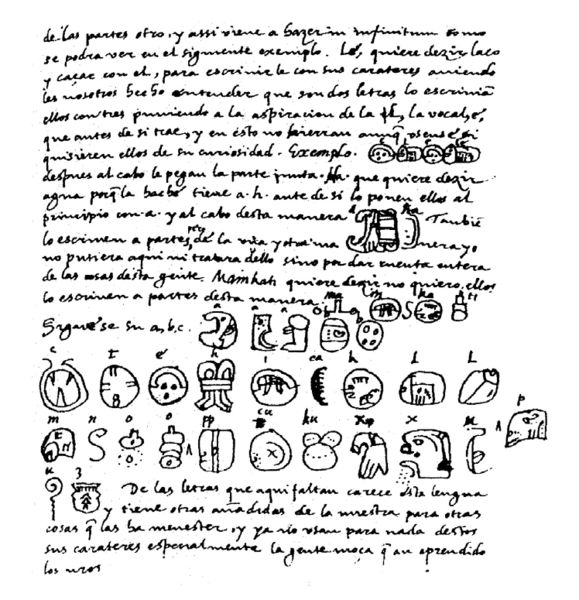 de las partes otro, y assi viene a hazer in infinitum como
se podra ver en el siguiente exemplo. Lé, quiere dezir laço
y caçar con el, para escrivirle con sus carateres aviendo
les nosotros hecho entender que son dos letras lo escrivian
ellos con tres puniendo a la aspiracion de la l, la vocal, é,
que antes de si trae, y en esto no hierran aunq̃ usense si
quisieren ellos de su curiosidad. Exemplo.
despues al cabo le pegan la parte junta. Ha. que quiere dezir
agua porq̃ la hache tiene a. h. ante de si lo ponen ellos al
principio con a. y al cabo desta manera a ha Tanbie
lo escriven a partes, de la una y otra ma nera yo
no pusiera aqui ni tratara dello sino por dar cuenta entera
de las cosas desta gente. Mainkati quiere dezir no quiero, ellos
lo escriven a partes desta manera ma i n ka ti
Siguese su a, b, c. a a a b b
c t é h i ca k l L
m n o o pp cu ku x x u p
u z De las letras que aqui faltan carece esta lengua
y tiene otras añadidas de la nuestra para otras
cosas q̃ las ha menester, y ya no usan para nada destos
sus carateres especialmente la gente moça q̃ an aprendido
los nros